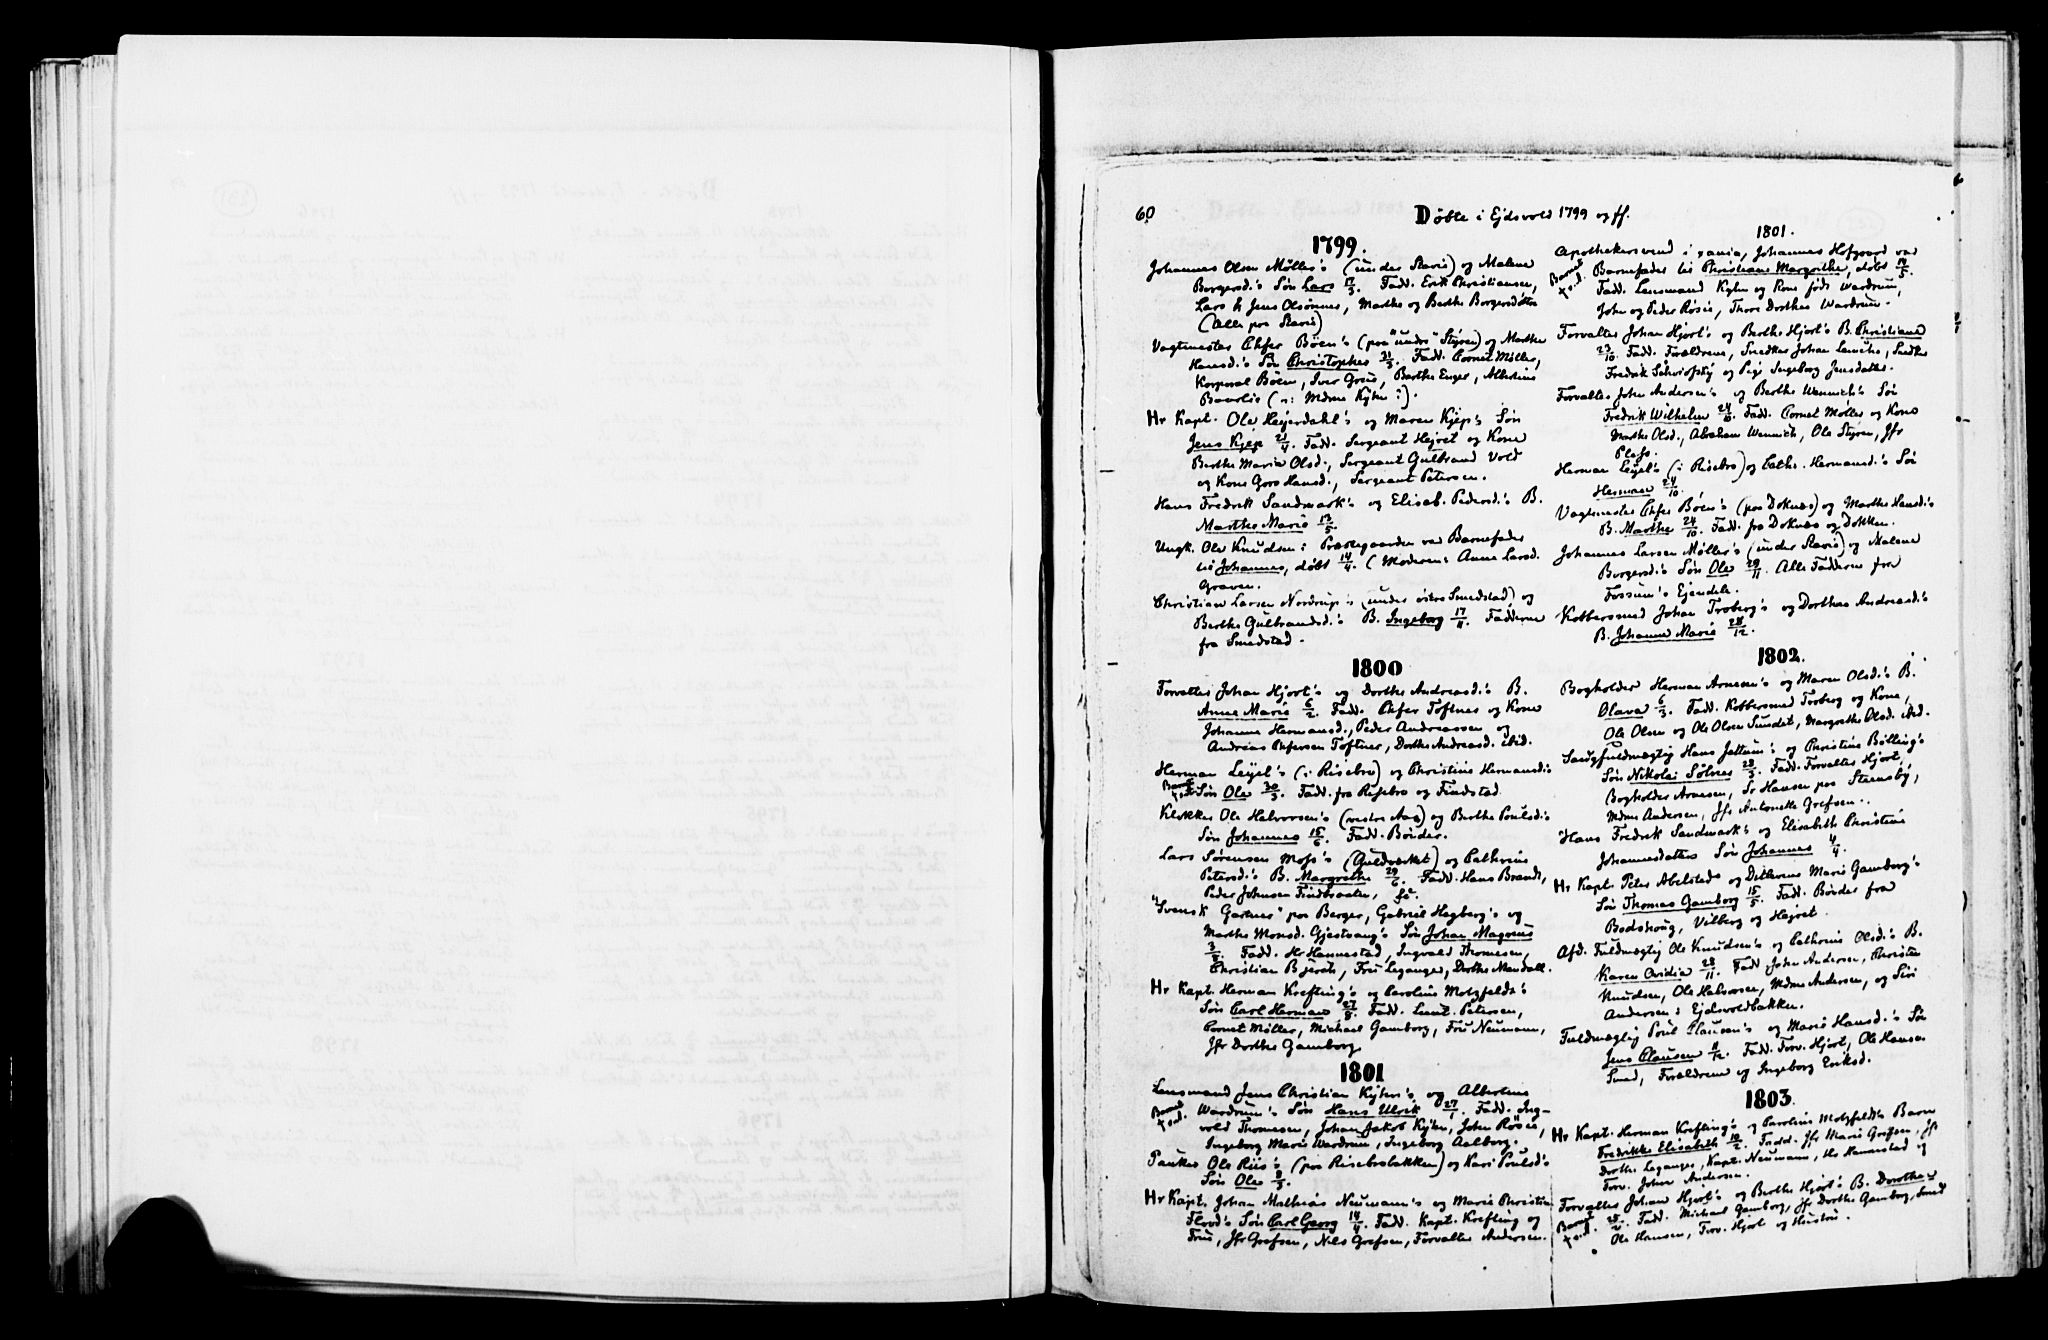 60
Døbte i Ejdsvold 1799 og ff.
1799.
Johannes Olsen Møller's (under Ravis) og Malene
Borgersd.'s Søn Lars 17/3. Fadd. Erik Christiansen,
Lars & Jens Olsønner, Marthe og Berthe Borgersdøttre
(Alle paa Ravis)
Vagtmester Chfer Böen's (paa "under" Styren) og Marthe
Hansd.'s Søn Christopher 31/3. Fadd. Cornet Møller,
Korporal Böen, Iver Grue, Barthe Enger, Albertine
Baarlie (ɔ: Mdme Kyhn :).
Hr Kapt. Ole Heyerdahl's og Maren Kjep's Søn
Jens Kjep 21/4. Fadd. Sergeant Hejret og Kone
Berthe Maria Olsd., Sergeant Gulbrand Vold
og Kone Goro Hansd., Sergeant Petersen.
Hans Fredrik Sandmark's og Elisab. Pedersd.'s B.
Marthe Marie 13/5.
Ungk. Ole Knudsen i Præstegaarden var Barnefader
til Johannes, døbt 14/4. (Moderen: Anne Larsd.
Graven.
Christian Larsen Nordrup's (under østre Smedstad) og
Berthe Gulbrandsd.'s B. Ingeborg 17/11. Fadderne
fra Smedstad.
1800
Forvalter Johan Hjort's og Dorthe Andreasd.'s B.
Anne Marie 6/2. Fadd. Chfer Toftner og Kone
Johanne Hermansd., Peder Andreassen og
Andreas Chfersen Toftner, Dorthe Andreasd. ibid.
Herman Leyel's (i Risebro) og Christine Hermansd.'s
Barnet † s.d. Søn Ole 30/3. Fadd. fra Risebro og Findstad.
Klokker Ole Halvorsen's (vestre Aas) og Berthe Poulsd.'s
Søn Johannes 15/6. Fadd. Bönder.
Lars Sørensen Moss's (Guldværket) og Cathrine
Petersd.'s B. Margrethe 29/6. Fadd. Hans Brandt,
Peder Johnsen Findbraaten, &c.
"Svensk Gartner" paa Berger, Gabriel Hegberg's og
Marthe Monsd. Gjestvang's Søn Johan Magnus
3/8. Fadd. Hr Hannestad, Ingvald Thomesen,
Christian Bjerch, Frue Leganger, Dorthe Mandall.
Hr Kapt. Herman Krefting's og Caroline Motzfeldt's
Søn Carl Herman 27/8. Fadd. Leut. Petersen,
Cornet Møller, Michael Gamborg, Frue Neumann,
Jfr Dorthe Gamborg
1801
Lensmand Jens Christian Kyhn's og Albertine
Barnet † s.d. Wardrum's Søn Hans Ulrik 27/1. Fadd. Ing-
vold Thomesen, Johan Jakob Kyhn, John Røsie,
Ingeborg Marie Wardrum, Ingeborg Aalborg.
Pauker Ole Riis's (paa Risebrobakken) og Kari Poulsd.'s
Søn Ole 8/3.
Hr Kapt. Johan Mathias Neumann's og Marie Christine
Flood's Søn Carl Georg 14/4. Fadd. Kapt. Krefting og
Frue, Jfr Grefsen, Nils Grefsen, Forvalter Andersen.
1801.
Apothekersvend i xania, Johannes Hofgaard var
Barnet † s.d. Barnefader til Christiane Margrethe, døbt 14/5.
Fadd. Lensmand Kyhn og Kone født Wardrum,
John og Peder Røsie, Thore Dorthea Wardrum.
Forvalter Johan Hjort's og Berthe Hjort's B. Christiane
23/10. Fadd. Forældrene, Snedker Johan Lemche, Snedker
Fredrik Schviofsky og Pige Ingeborg Jensdatter.
Forvalter John Andersen's og Berthe Wennich's Søn
Fredrik Wilhelm 24/10. Fadd. Cornet Møller og Kone
Marthe Olsd., Abraham Wennich, Ole Styren, Jfr
Pless.
Herman Leyel's (i Risebro) og Cathr. Hermansd.'s Søn
Herman 24/10.
Vagtmester Chfer Böen's (paa Doknæs) og Marthe Hansd.'s
B. Marthe 24/10. Fadd. fra Doknæs og Dokken.
Johannes Larsen Møller's (under Ravis) og Malene
Borgersd.'s Søn Ole 29/11. Alle Fadderne fra
Fossum's Ejendele.
Kobbersmed Johan Troberg's og Dorthea Andreasd.'s
B. Johanne Marie 28/12.
1802.
Bogholder Herman Arnesen's og Maren Olsd.'s B.
Olava 6/3. Fadd. Kobbersmed Troberg og Kone,
Ole Olsen og Ole Olsen Sundet, Margrethe Olsd. ibid.
Saugfuldmægtig Hans Jættum's og Christine Bölling's
Søn Nikolai Sølner 28/3. Fadd. Forvalter Hjort,
Bogholder Arnesen, Sr Hansen paa Stensby,
Mdme Andersen, Jfr Antonette Grefsen..
Hans Fredrik Sandmark's og Elisabeth Christine
Johannesdatters Søn Johannes 4/4.
Hr Kapt. Peter Abelsteds og Ditlevine Marie Gamborg's
Søn Thomas Gamborg 15/5. Fadd. Bönder fra
Bodshoug, Vilberg og Hejret.
Afd. Fuldmægtig Ole Knudsen's og Cathrine Olsd.'s B.
Karen Ovidia 28/11. Fadd. John Andersen, Christen
Knudsen, Ole Halvorsen, Mdme Andersen, og Siri
Andersen i Ejdsvoldbakken.
Fuldmægtig Poul Clausen's og Marie Hansd.'s Søn
Jens Clausen 11/12. Fadd. Forv. Hjort, Ole Hansen
Smed, Forældrene og Ingeborg Eriksd.
1803.
Hr Kapt. Herman Krefting's og Caroline Motzfeldt's Barn
Fredrikke Elisabeth 10/2. Fadd. Jfr Marie Grefsen, Jfr
Dorthe Leganger, Kapt. Neumann, Hr Hannestad og
Forv. John Andersen.
Forvalter Johan Hjort's og Berthe Hjort's B. Dorothea
Barnet † s.d. 25/2. Fadd. Michael Gamborg, Jfr Dorthe Gamborg, Smed
Ole Hansen, Forv. Hjort og Hustru.